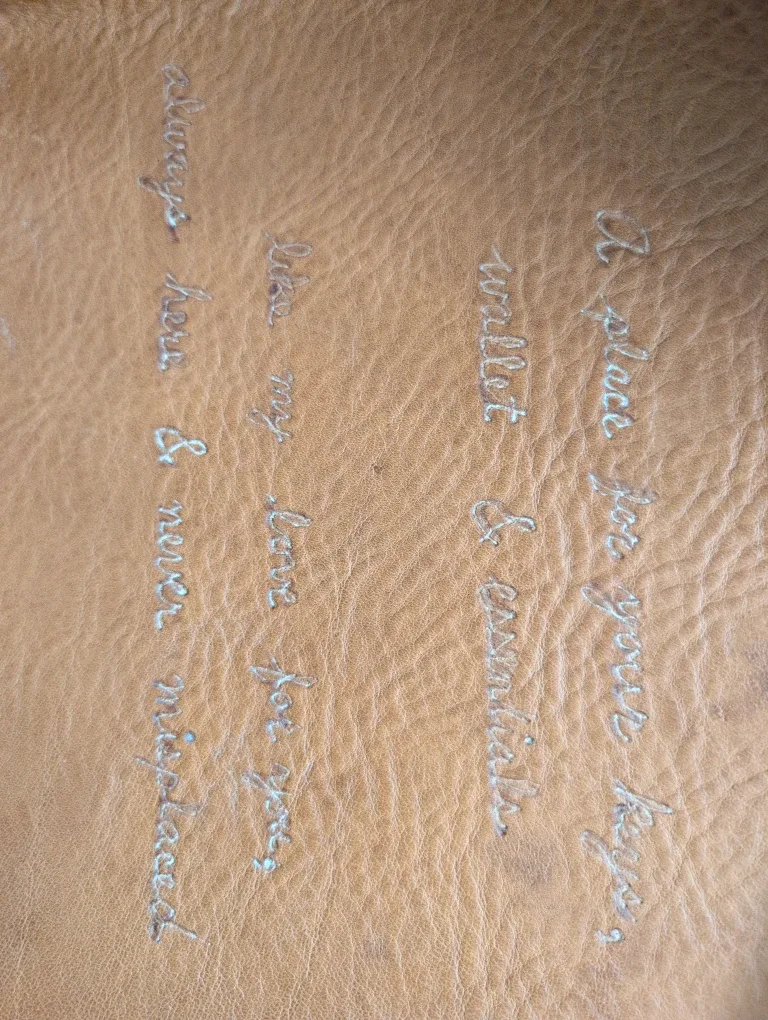 A place for your keys,
wallet & essentials
like my love for you,
always here & never misplaced